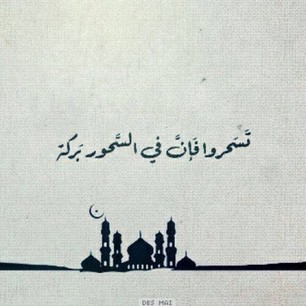 تَّسَحروا فَإنَّ في السَّحور بَركة
DES MAI